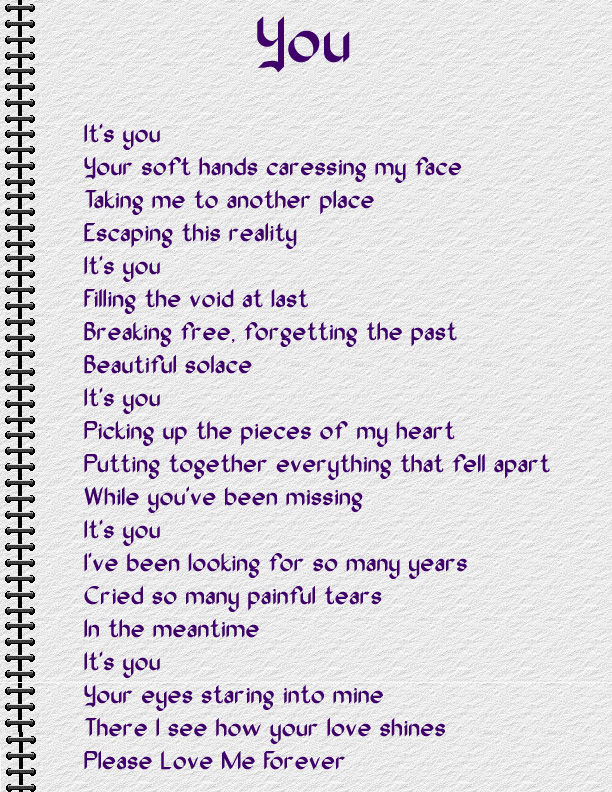 You
It's you
Your soft hands caressing my face
Taking me to another place
Escaping this reality
It's you
Filling the void at last
Breaking free, forgetting the past
Beautiful solace
It's you
Picking up the pieces of my heart
Putting together everything that fell apart
While you've been missing
It's you
I've been looking for so many years
Cried so many painful tears
In the meantime
It's you
Your eyes staring into mine
There I see how your love shines
Please Love Me Forever